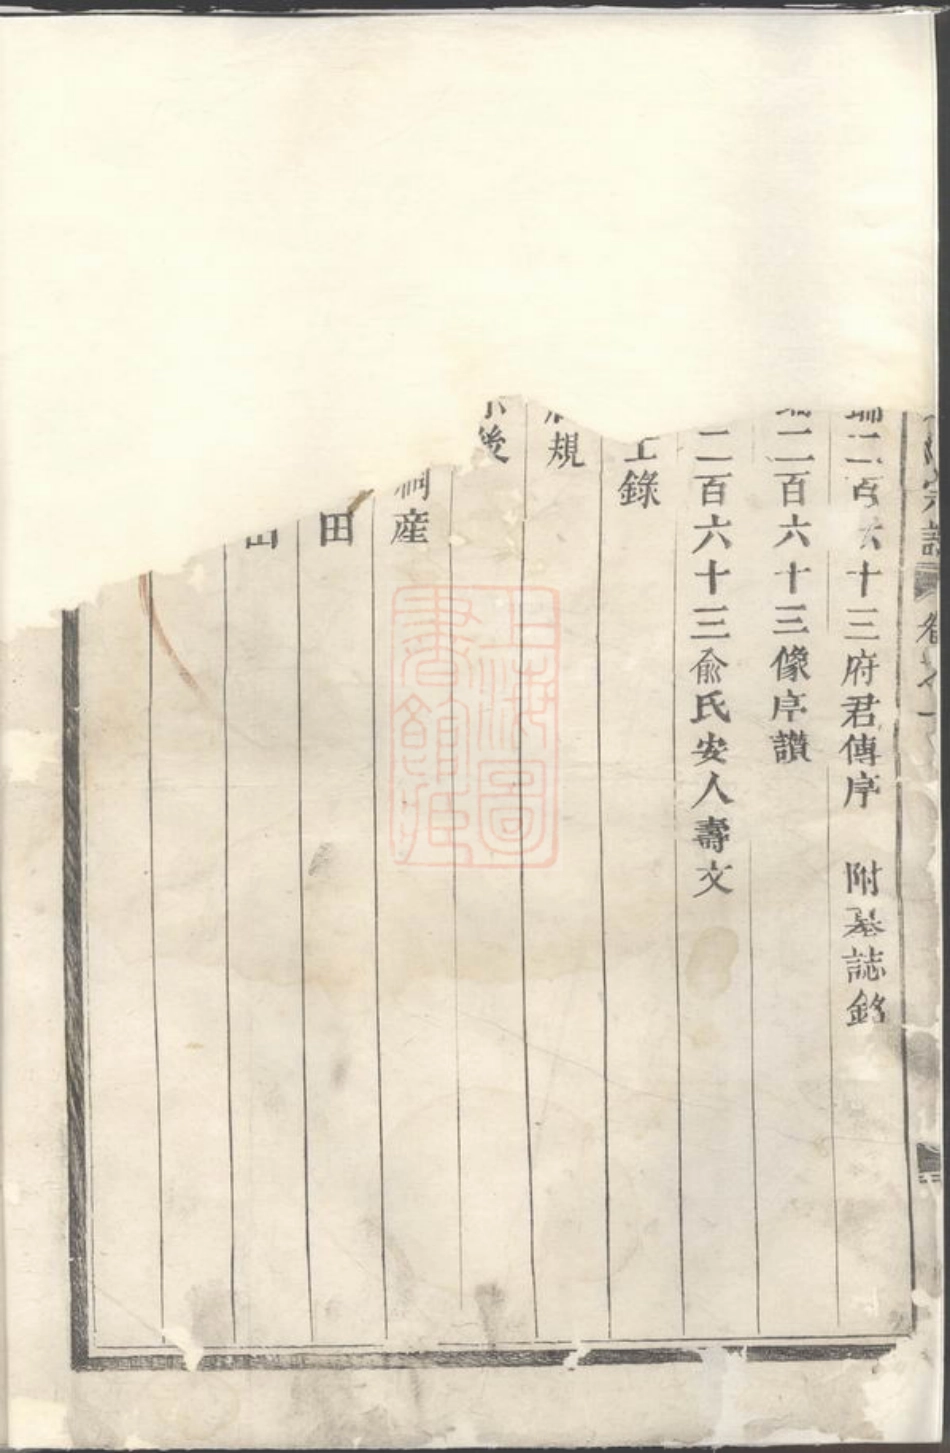 宗譜
卷之一
瑞二百六十三府君傳序 附墓誌銘
二百六十三像序讚
二百六十三俞氏安人壽文
錄
規
後
祠産
田
上海圖書館藏